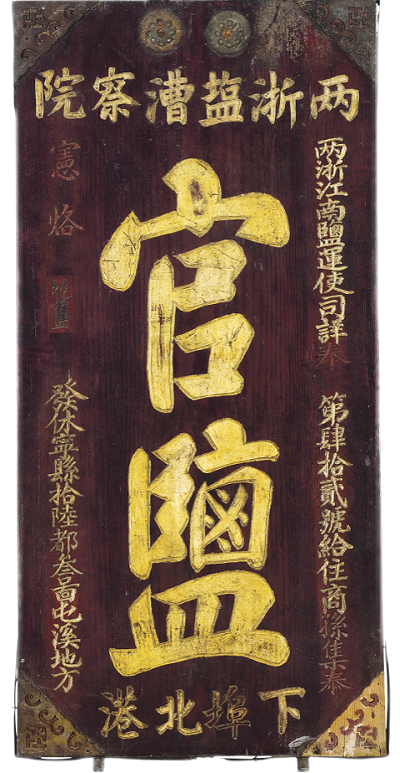 两浙盐漕察院
两浙江南鹽運使司詳奉
第肆拾貳號給住商孫集泰
官鹽
憲烙
發休寧縣拾陸都叁啚屯溪地方
下埠北港